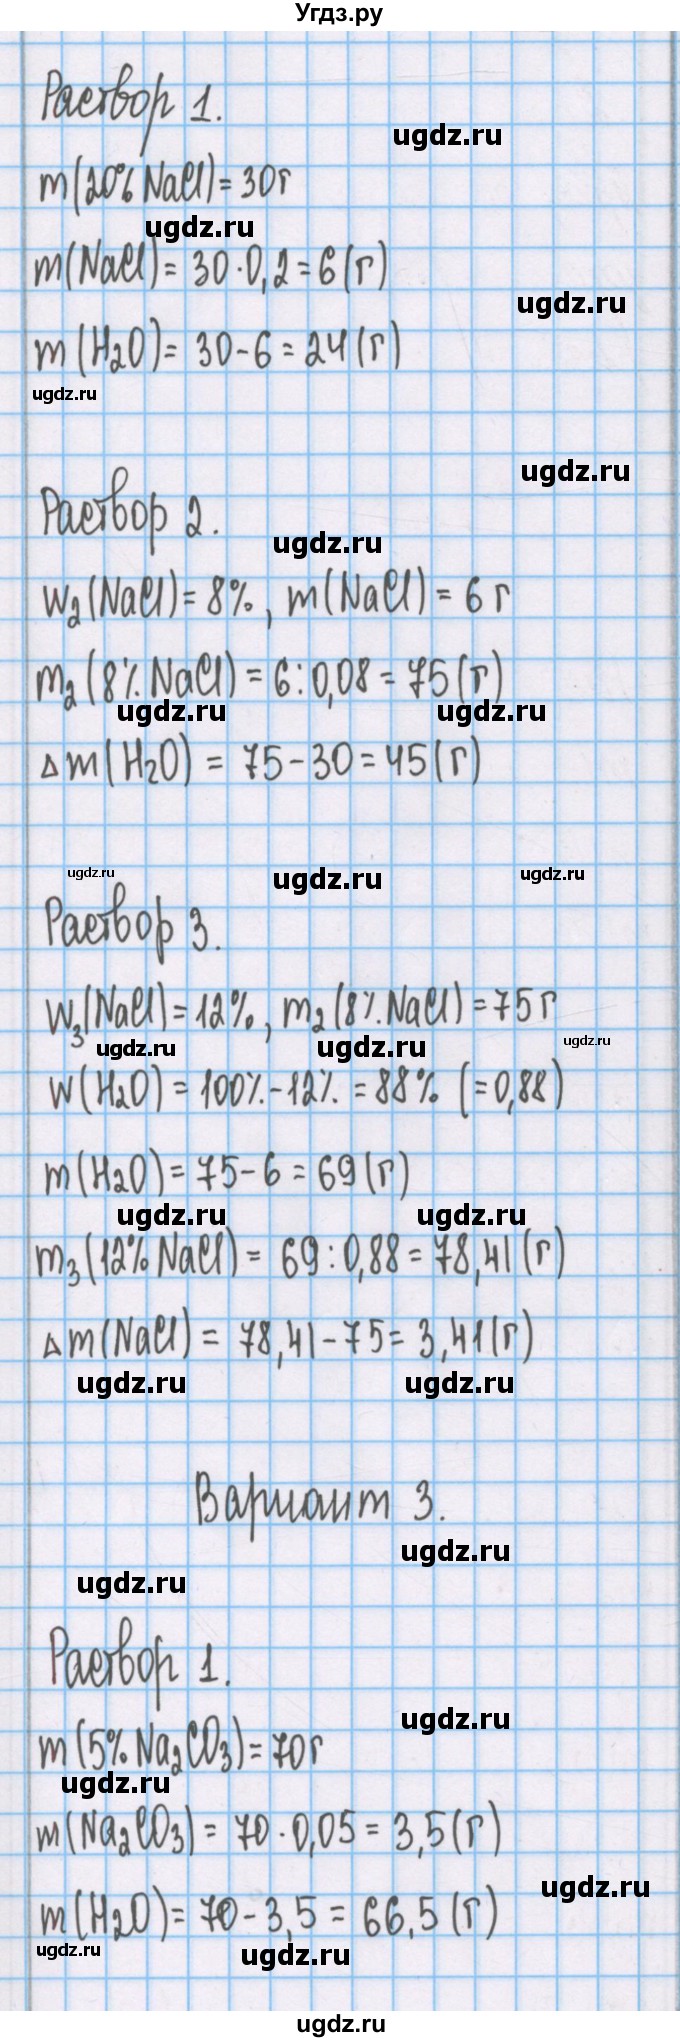 Угдз.ру
Раствор 1.
ugdz.ru
m(20% NaCl)= 30г
ugdz.ru
m(NaCl)= 30·0,2=6(г)
ugdz.ru
m(H2O)= 30-6=24(г)
ugdz.ru
ugdz.ru
Раствор 2.
ugdz.ru
w2(NaCl)=8%, m(NaCl)= 6г
m2(8% NaCl)= 6:0,08=75(г)
ugdz.ru ugdz.ru
Δm(H2O) = 75-30=45(г)
ugdz.ru ugdz.ru ugdz.ru
Раствор 3.
w3(NaCl)=12%, m2(8% NaCl)=75г
ugdz.ru ugdz.ru ugdz.ru
w(H2O)=100%-12% =88% (=0,88)
m(H2O)=75-6=69(г)
ugdz.ru ugdz.ru
m3(12% NaCl)= 69:0,88=78,41(г)
Δm(NaCl)= 78,41-75= 3,41(г)
ugdz.ru ugdz.ru
Вариант 3.
ugdz.ru
ugdz.ru
Раствор 1.
ugdz.ru
m(5% Na2CO3)=70г
ugdz.ru
m(Na2CO3)= 70·0,05= 3,5(г)
ugdz.ru
m(H2O)= 70-3,5= 66,5(г)
ugdz.ru ugdz.ru
ugdz.ru